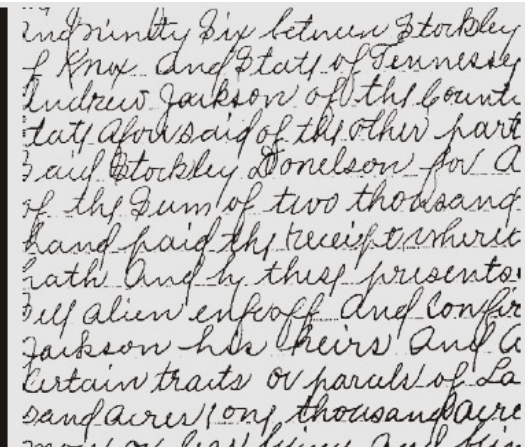 and ninety Six between Stockley
of Knox and State of Tennessey
Andrew Jackson of the County
State aforesaid of the other part
Said Stockley Donelson for a
of the Sum of two thousand
hand paid the receipt wherit
hath And by these presents
Sell alien enfeoff And Confir
Jackson his heirs And a
Certain tracts or parcels of La
sand acres (one thousand acre
more or less lying and bein